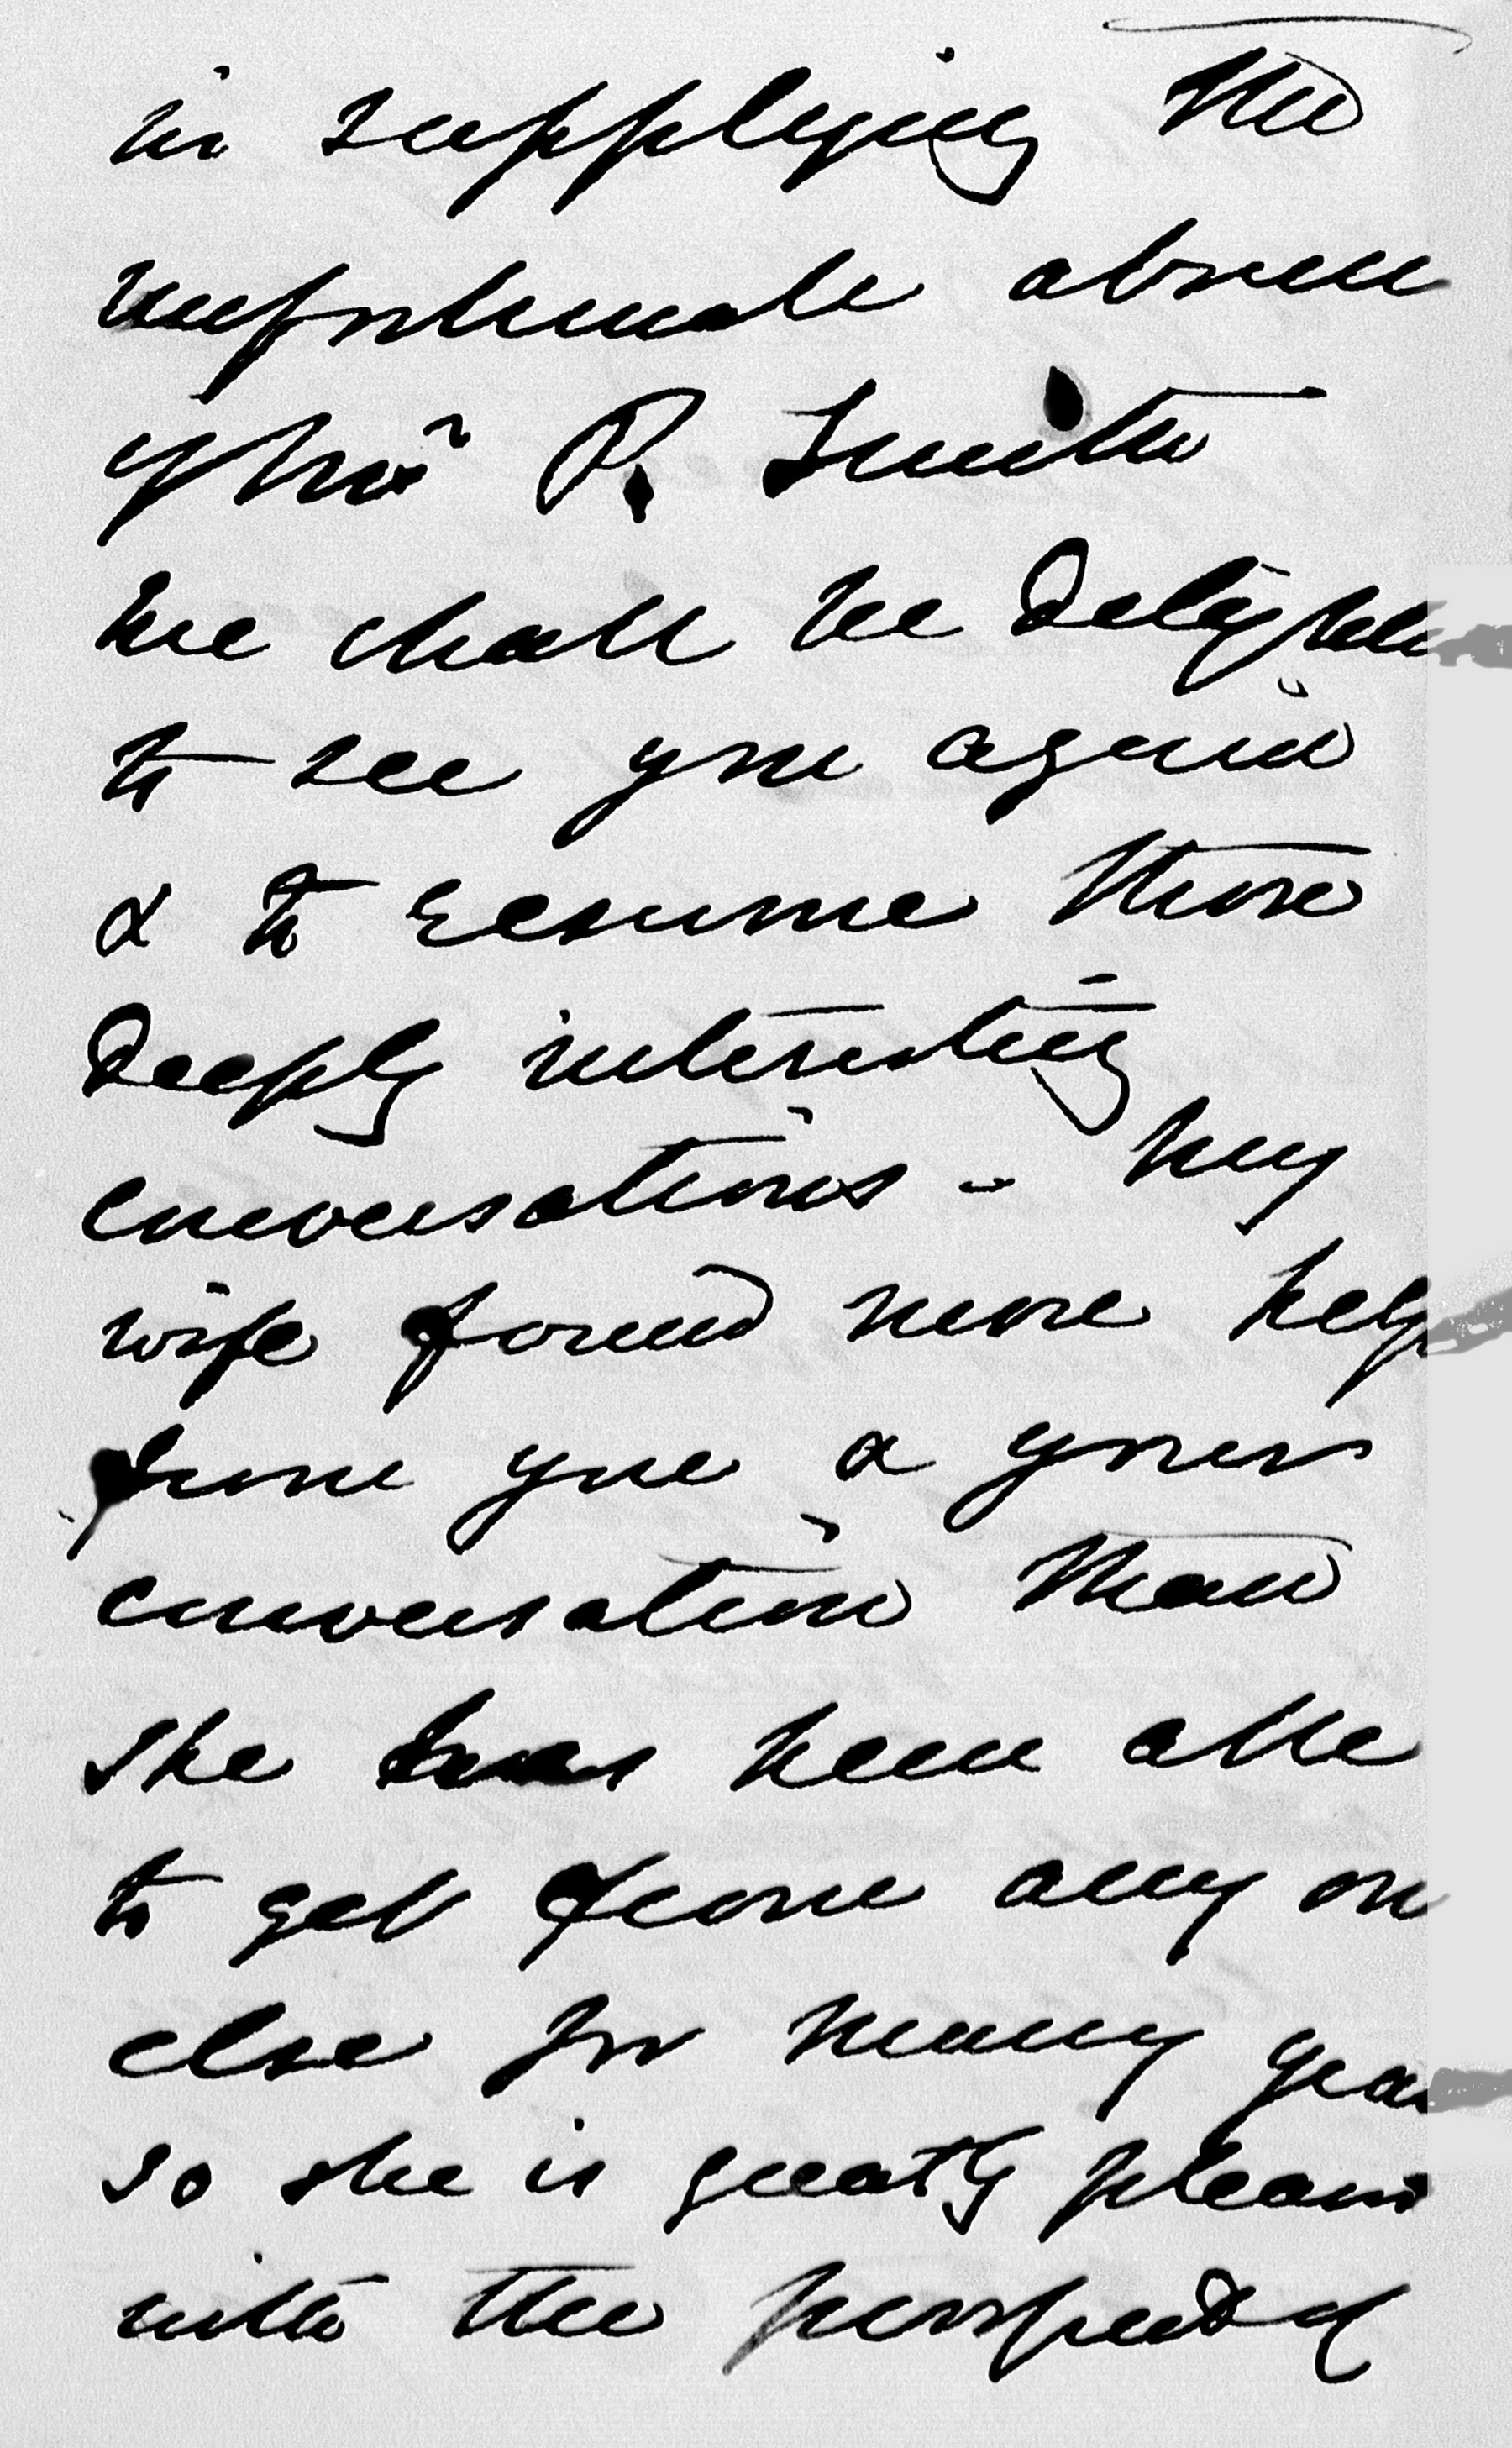 in supplying the
unfortunate absence
of Mrs P. Smith
We shall be delighted
to see you again
& to resume those
deeply interesting
conversations - My
wife found more help
from you & your
conversation than
she has been able
to get from any one
else for many years
so she is greatly pleased
with the prospect of